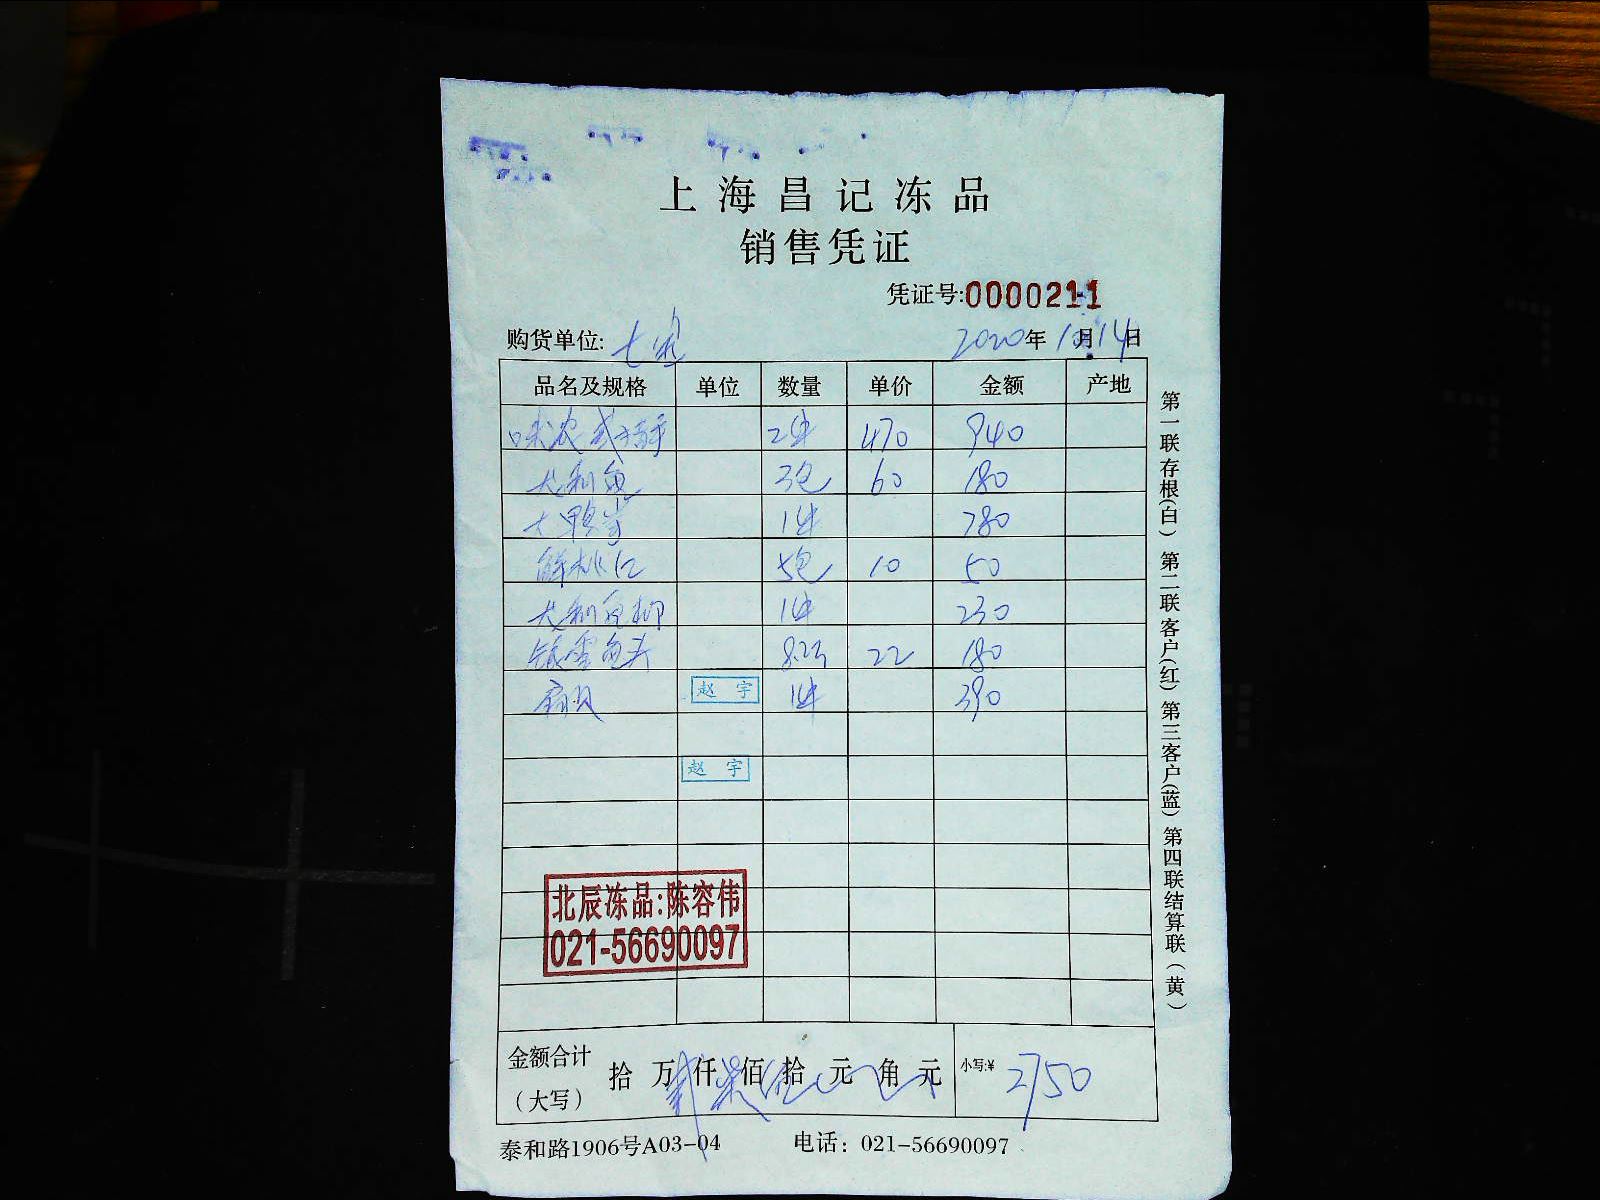 上海昌记冻品
销售凭证
凭证号:0000211
购货单位: 七
2020年1月14日
品名及规格 单位 数量 单价 金额 产地
2件 470 940
龙利鱼 3包 60 180
大鸭 1件 780
鲜桃仁 5包 10 50
龙利鱼柳 1件 230
银雪鱼头 8.2斤 22 180
赵宇 1件 390
赵宇
北辰冻品:陈容伟
021-56690097
金额合计
(大写)
拾 万 贰仟 柒佰 伍拾 元 角 元 小写:¥ 2750
泰和路1906号A03-04 电话: 021-56690097
第一联存根(白) 第二联客户(红) 第三客户(蓝) 第四联结算联(黄)